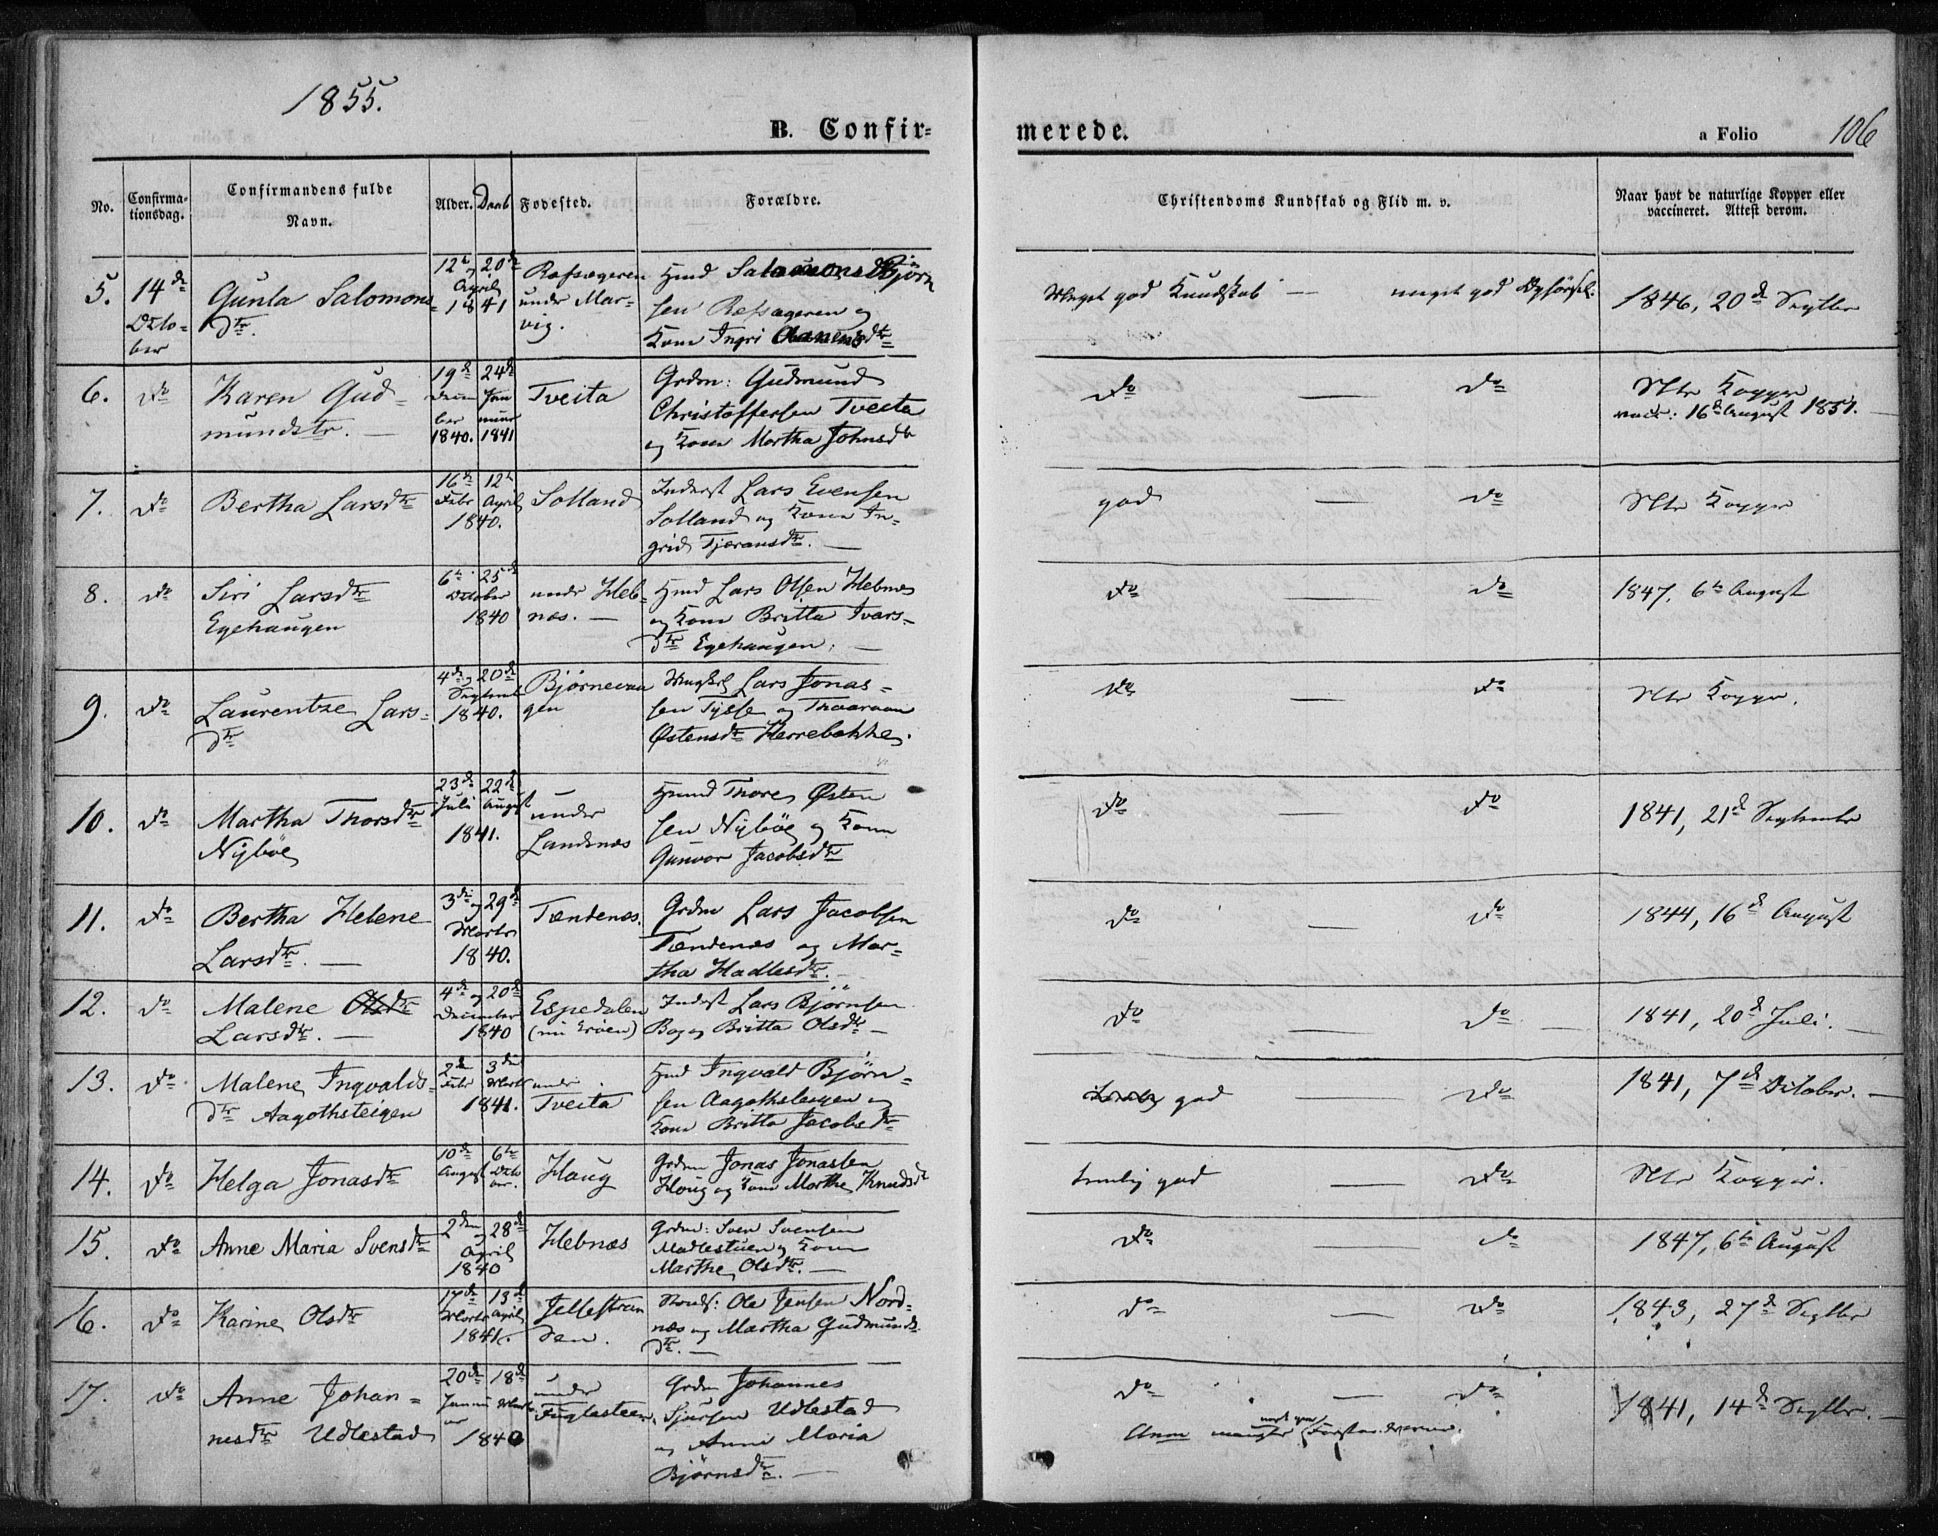 1855.
B. Confir=
merede.
a Folio 106
No.
Confirma-
tionsdag.
Confirmandens fulde
Navn.
Alder. Daab
Fødested.
Forældre.
Christendoms Kundskab og Flid m. v.
Naar havt de naturlige Kopper eller
vaccineret. Attest derom.
5. 14de Octo-
ber
Gunla Salomons-
dtr.
12te og 20de
April
1841
Refsageren
under Mar-
vig.
Hmd Salomon Bjørn
sen Refsageren og
Kone Ingri
Meget god Kundskab — meget god Opførsel.
1846, 20de Septbr
6. do
Karen Gud-
mundsdtr. —
19de Decem
ber
1840.
24de Jan
nuar
1841
Tveita
Grdm: Gudmund
Christoffersen Tveita
og Kone Martha Johnsdtr
do — do
Ntr Kopper
vacc: 16de August 1851.
7. do
Bertha Larsdtr
16de Febr 12te April
1840.
Solland
Inderst Lars Evensen
Solland og Kone In-
grid Tjeransdtr. —
god — do
Ntr Kopper
8. do
Siri Larsdtr
Egehaugen
6te 25de
October
1840
under Heb-
næs. —
Hmd Lars Olsen Hebnæs
og Kone Britta Ivars-
dtr Egehaugen. —
do — do
1847, 6te August
9. do
Laurentze Lars-
dtr
4de og 20de
Septembr
1840.
Bjørnevaa
gen
Ungkl Lars Jonas-
sen Tysse og
Østensdtr Herrebakke.
do — do
Ntr Kopper.
10. do
Martha Thorsdtr
Nybøe
23de Juli 22de August
1841.
under
Landsnæs
Hmd Thore Østen
sen Nybøe og Kone
Gunvor Jacobsdtr
do — do
1841, 21de September
11. do
Bertha Helene
Larsdtr. —
3de og 29de
Marts
1840.
Tændenæs.
Grdm Lars Jacobsen
Tændenæs og Mar-
tha Hadlesdtr. —
do — do
1844, 16de August
12. do
Malene Olsdtr
Larsdtr. —
4de og 20de
December
1840
Espedalen
(nu Erøen)
Inderst Lars Bjørnsen
Bog og Britta Olsdtr —
do — do —
1841, 20de Juli. —
13. do
Malene Ingvalds-
dtr Aagothsteigen
2den Febr 3die Marts
1841.
under
Tveita
Hmd Ingvald Bjørn-
sen Aagothsteigen og
Kone Britta Jacobsdtr
god — do
1841, 7de October. —
14. do
Helga Jonasdtr
10de August 6te Octo
ber.
Haug
Grdm Jonas Jonassen
Houg og Kone Marthe Knudsdtr
temlig god — do
Ntr Kopper.
15. do
Anne Maria Svensdtr
2den og 28de
April
1840
Hebnæs
Grdm: Sven Svensen
Madlestuen og Kone
Marthe Olsdtr. —
do — do
1847, 6te August
16. do
Karine Olsdtr
17de Marts 13de April
1841.
Jelsestran
den.
Strands: Ole Jensen Nord-
næs og Martha Gudmunds
dtr. —
do — do
1843, 27de Septbr
17. do
Anne Johan-
nesdtr Udlestad
20de Janu
ar
18de Marts
1840
under
Fuglesteen.
Grdm Johannes
Sjursen Udlestad
og Anne Maria
Bjørnsdtr. —
do — do
Anm mangler
1841, 14de Septbr. —